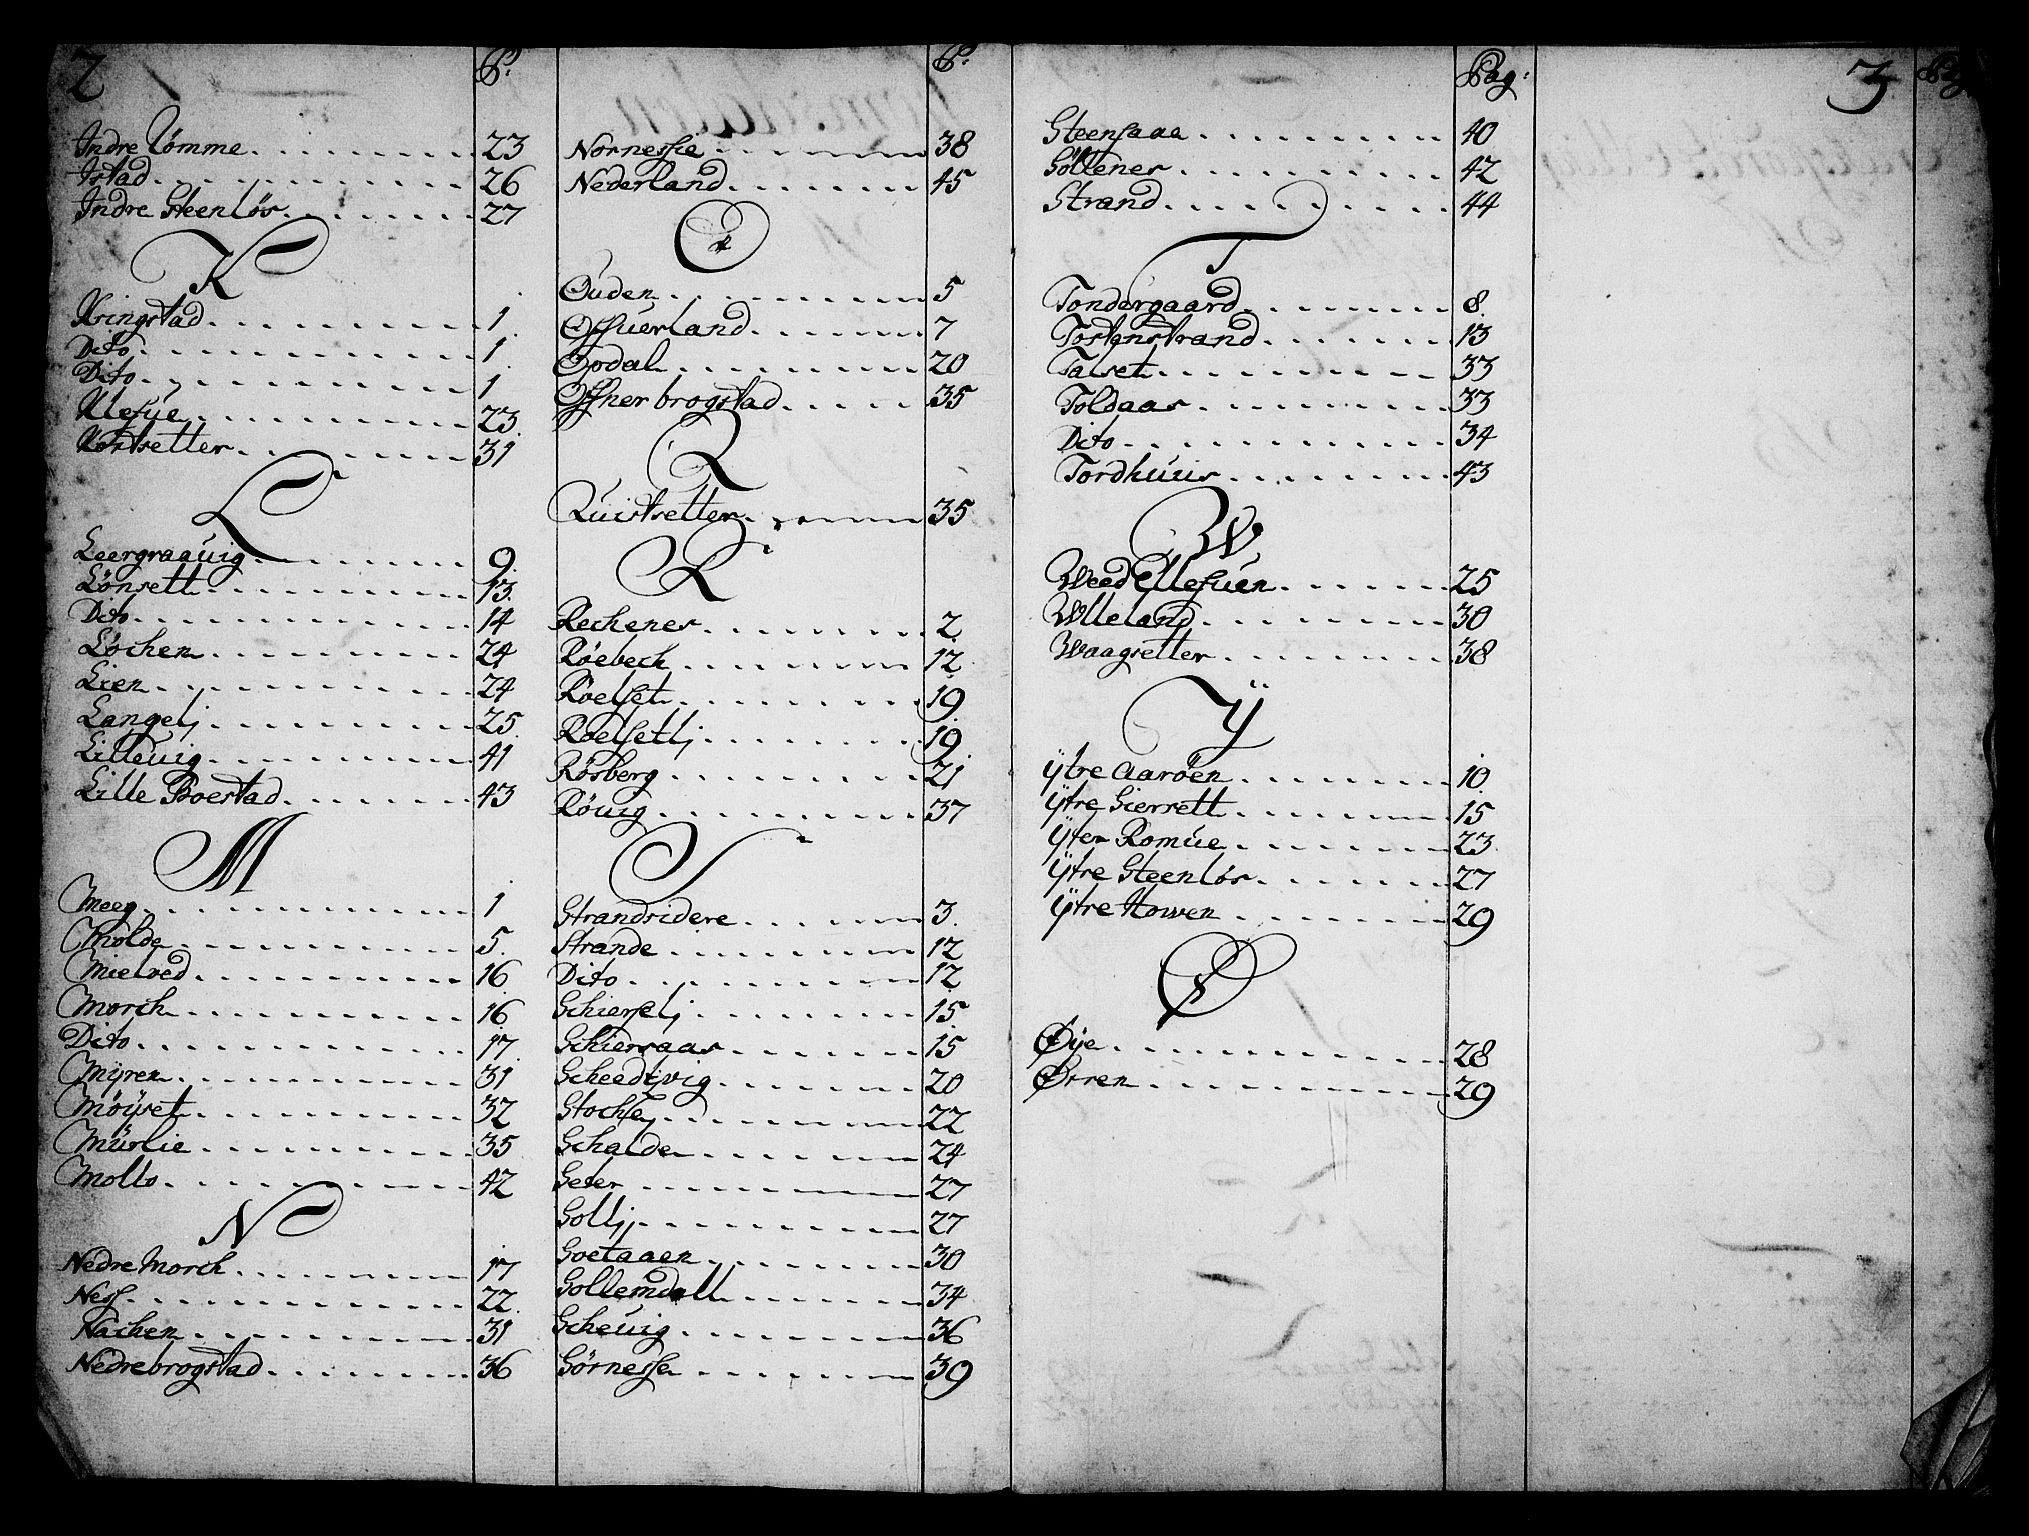 2
P.
Indre Lømme 23
Istad 26
Indre Steenløs 27
K
Kringstad 1
Dito 1
Dito 1
Klefue 23
Kortsetter 31
L
Leergraauig 9
Lønsett 13
Dito 14
Løchen 24
Lien 24
Langelj 25
Lilleuig 41
Lille Boestad 43
M
Meeg 1
Molde 5
Mielved 16
Morch 16
Dito 17
Myren 31
Möyset 32
Mürlie 35
Mollo 42
N
Nedre Morch 17
Ness 22
Nachen 31
Nedrebrogstad 36
P.
Nornessie 38
Nederland 45
O
Ouden 5
Offuerland 7
Opdal 20
Offnerbrogstad 35
Q
Quistsetter 35
R
Rechenes 2
Röebech 12
Roelset 19
Roelsetlj 19
Røsberg 21
Röuig 37
S
Strandsidere 3
Strande 12
Dito 12
Schierselj 15
Schiersaas 15
Scheedvig 20
Stocke 22
Schalden 24
Seter 27
Sollj 27
Soetaaen 30
Sollemdall 34
Scheuig 36
Sörnesse 39
Pag:
Steensaaa 40
Söltenes 42
Strand 44
T
Tondergaard 8
Tostenstrand 13
Talset 33
Toldaas 33
Dito 34
Tordhuus 43
W
Weed Elfuen 25
Wlleland 30
Waagsetter 38
Ÿ
Ÿtre Aaröen 10
Ÿtre Giersett 15
Ÿter Romüe 23
Ÿtre Steenløs 27
Ÿtre Howen 29
Ø
Øye 28
Ørren 29
3
Pag